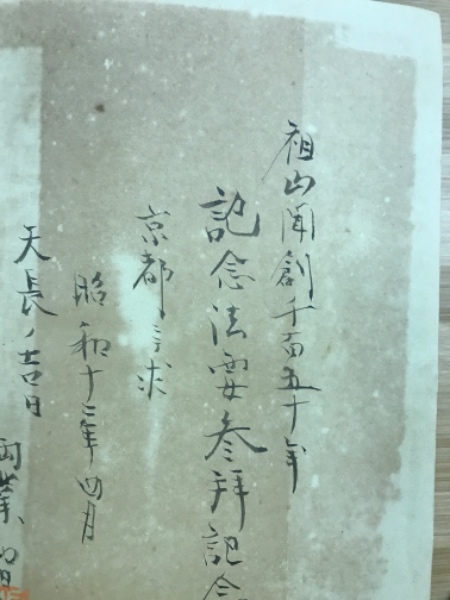 祖山開創千百五十年
記念法要参拝記念
京都ニ求
昭和十二年四月
天長ノ吉日